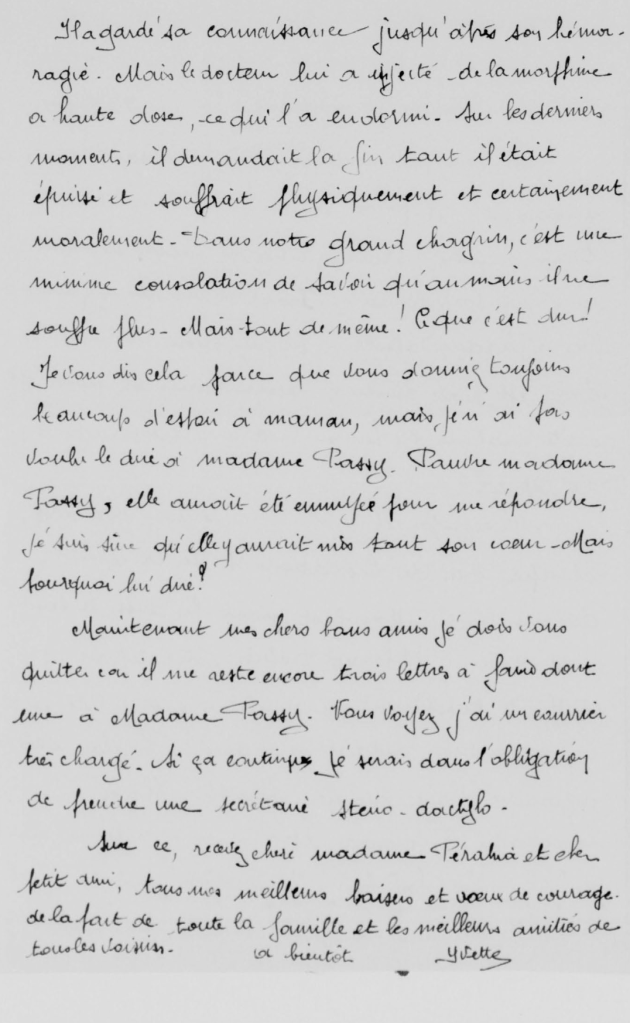 Il a gardé sa connaissance jusqu'après son hémor-
ragie. Mais le docteur lui a injecté de la morphine
a haute dose, ce qui l'a endormi. Sur les derniers
moments, il demandait la fin tant il était
épuisé et souffrait physiquement et certainement
moralement. Dans notre grand chagrin, c'est une
minime consolation de savoir qu'au moins il ne
souffre plus. Mais tout de même! Ce que c'est dur!
Je vous dis cela parce que vous donniez toujours
beaucoup d'espoir à maman, mais je n'ai pas
voulu le dire à madame Passy. Pauvre madame
Passy, elle aurait été ennuyée pour me répondre,
je suis sûre qu'elle y aurait mis tout son cœur. Mais
pourquoi lui dire?
Maintenant mes chers bons amis je dois vous
quitter car il me reste encore trois lettres à faire dont
une à Madame Passy. Vous voyez j'ai un courrier
très chargé. Si ça continue je serais dans l'obligation
de prendre une secrétaire sténo-dactylo.
Sur ce, recevez chère madame Pérahia et cher
petit ami, tous mes meilleurs baisers et vœux de courage
de la part de toute la famille et les meilleurs amitiés de
tous les voisins. a bientôt Yvette